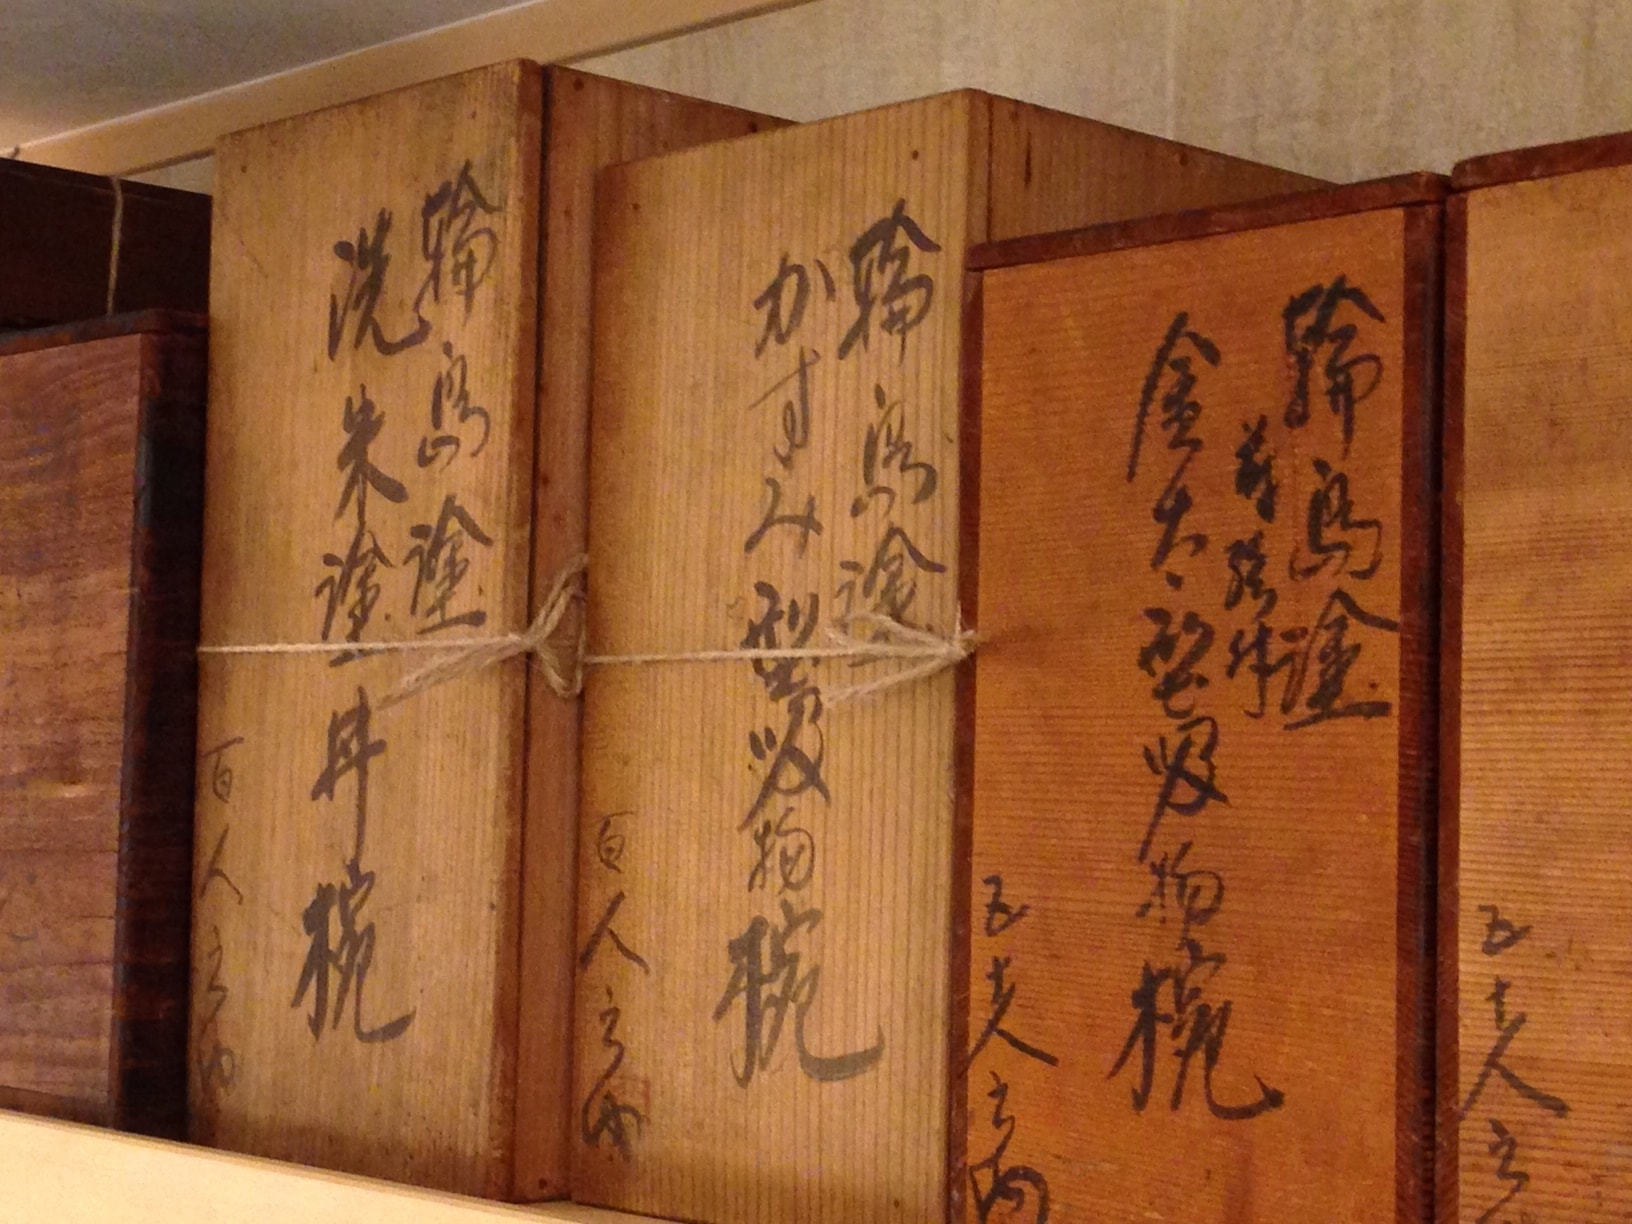 輪島塗
洗朱塗丼椀
百人之内
輪島塗
かすみ型吸物椀
百人之内
輪島塗
金大型吸物椀
五十人之内
五十人之